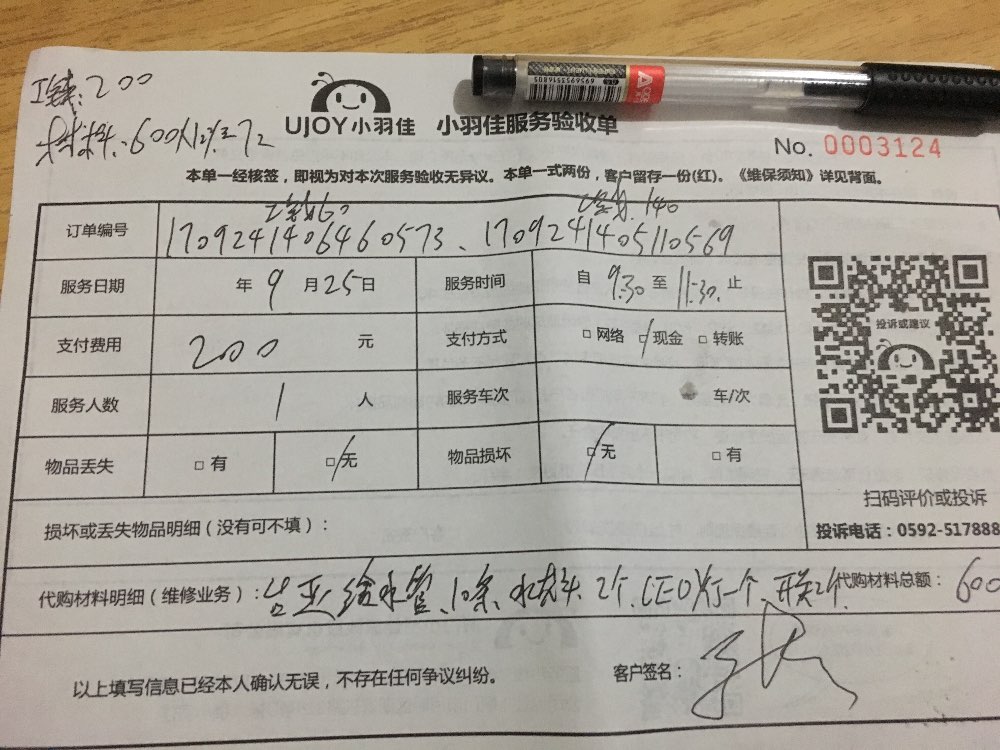 工钱:200
材料:600
UJOY小羽佳 小羽佳服务验收单
6956953316805
No. 0003124
本单一经核签，即视为对本次服务验收无异议。本单一式两份，客户留存一份(红)。《维保须知》详见背面。
工钱60 工钱140
订单编号 1709241406460573、1709241405110569
服务日期 年 9 月 25 日 服务时间 自 9:30 至 11:30. 止
支付费用 200 元 支付方式 □ 网络 □ 现金 □ 转账
服务人数 1 人 服务车次 车/次
物品丢失 □ 有 □ 无 物品损坏 □ 无 □ 有
投诉或建议
扫码评价或投诉
投诉电话：0592-517888
损坏或丢失物品明细（没有可不填）：
代购材料明细（维修业务）： 给水管、10条、水龙头 2个、LED灯一个、开关2个 代购材料总额： 600
以上填写信息已经本人确认无误，不存在任何争议纠纷。
客户签名：